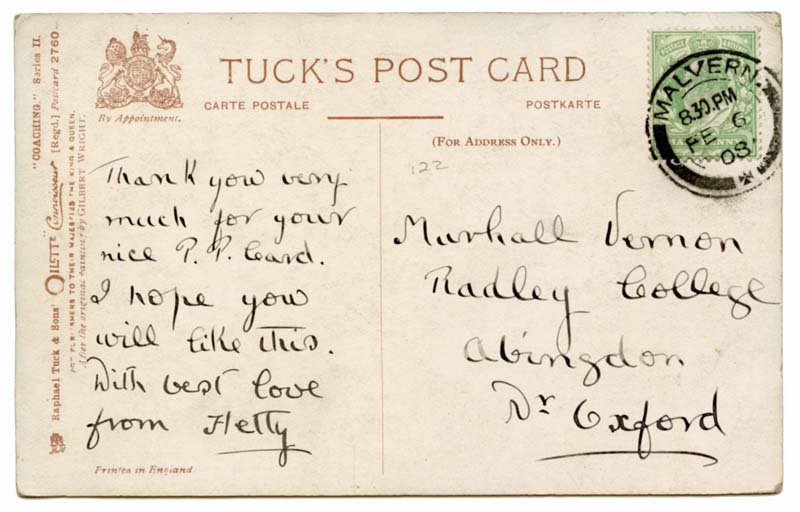 "COACHING." Series II.
Raphael Tuck & Sons' "OILETTE" Connoisseur [Regd.] Postcard 2760
ART PUBLISHERS TO THEIR MAJESTIES THE KING & QUEEN.
After the original painting by GILBERT WRIGHT.
By Appointment.
TUCK'S POST CARD
CARTE POSTALE
POSTKARTE
(FOR ADDRESS ONLY.)
122
MALVERN
8.30 PM
FE 6
08
Thank you very
much for your
nice P. P. Card.
I hope you
will like this.
With best love
from Hetty
Marhall Vernon
Radley College
Abingdon
Nr Oxford
Printed in England